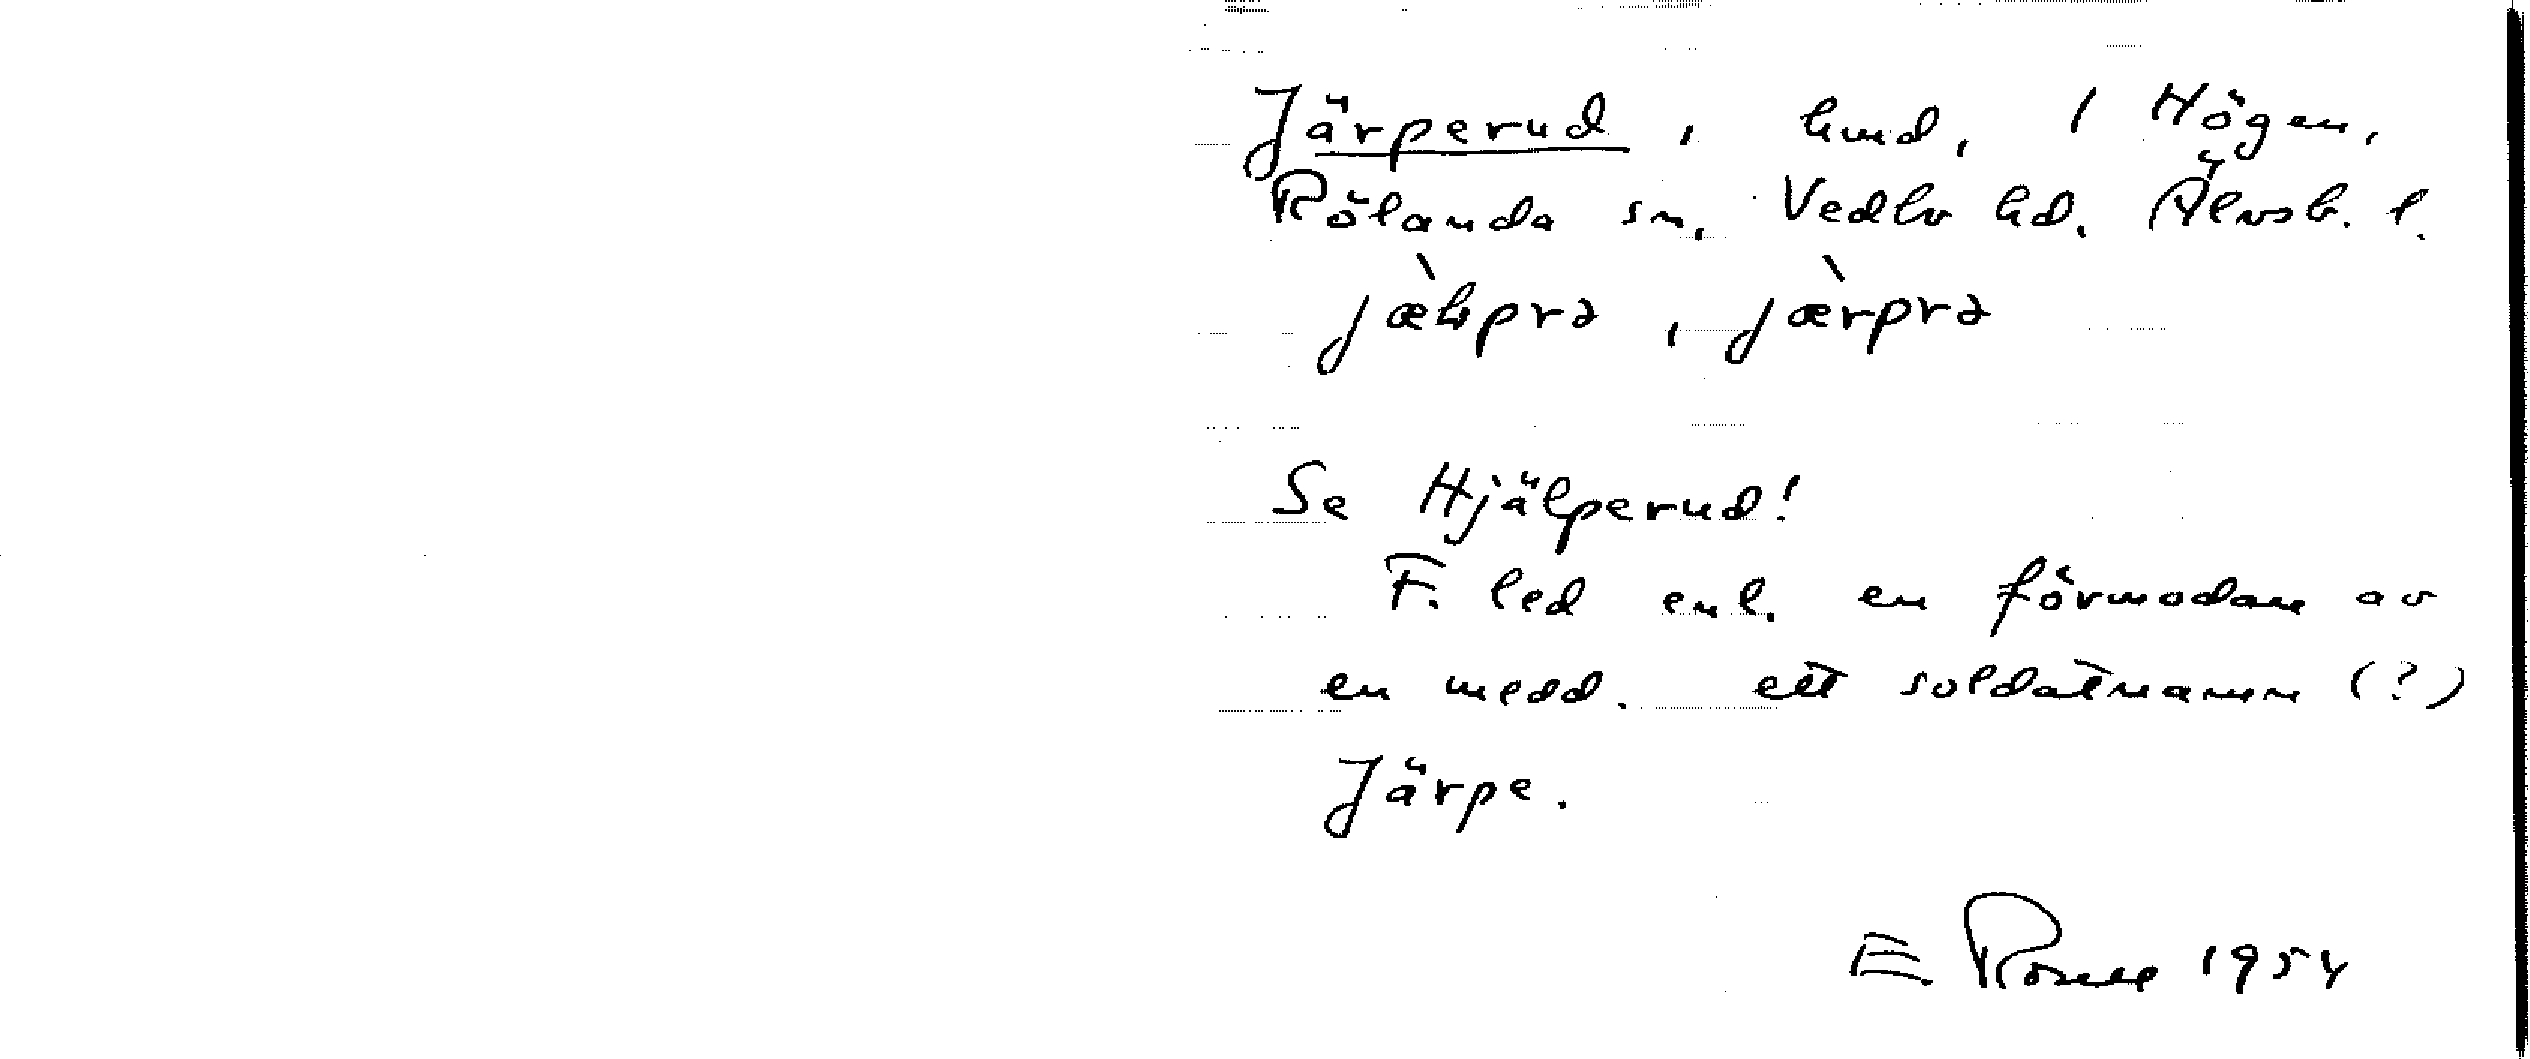 Järperud, hmd, 1 Högen,
Rölanda sn, Vedbo hd. Älvsb. l.
jærprə
Se Hjälperud!
F. led enl. en förmodan av
en medd. ett soldatnamn (?)
Järpe.
E. 1954